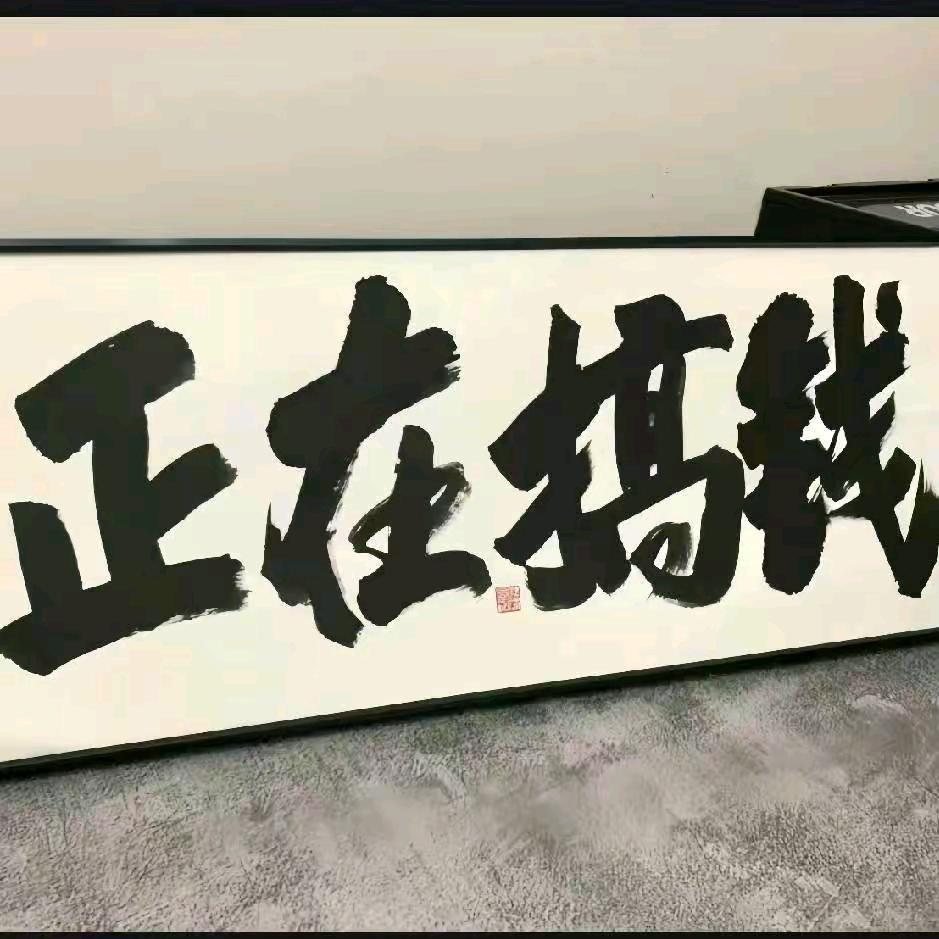 正在搞钱